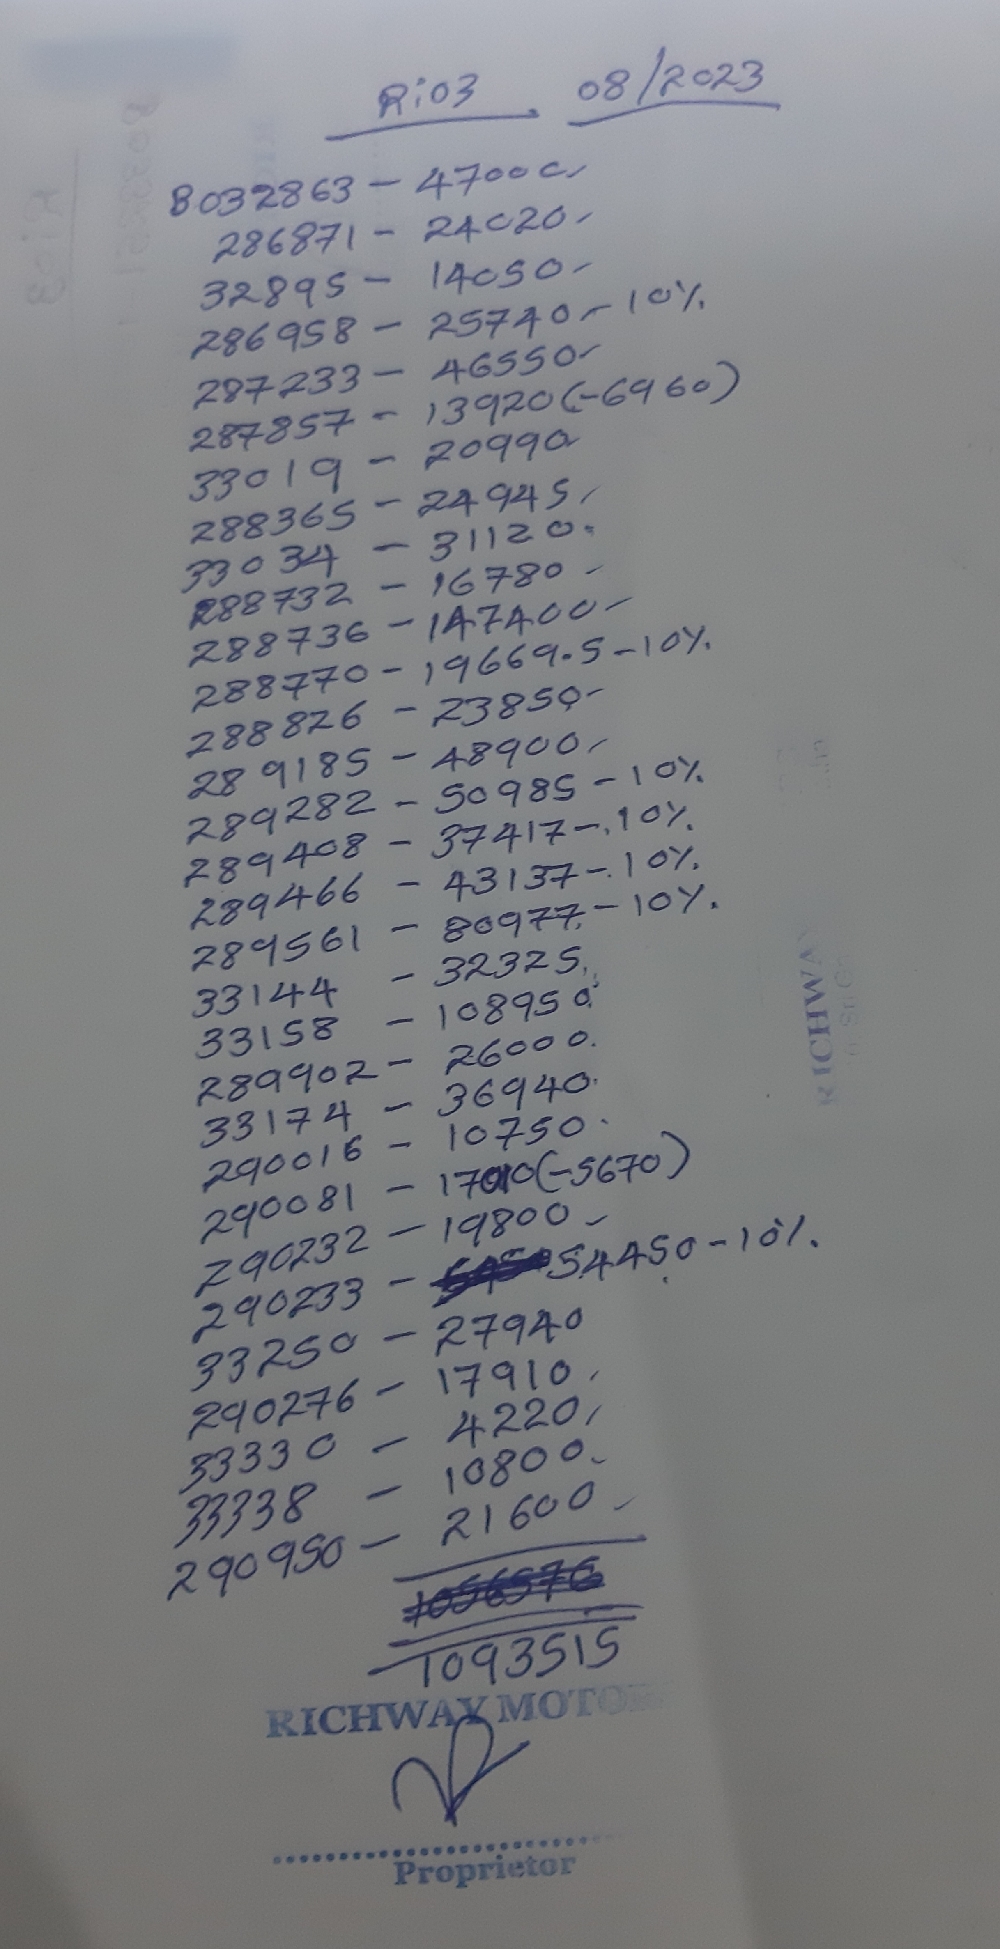 Ri03 08/2023
8032863 - 47000
286871 - 24020
32895 - 14050
286958 - 25740 - 10%
287233 - 46550
287857 - 13920 (-6960)
33019 - 20990
288365 - 24945
33034 - 31120
288732 - 16780
288736 - 147400
288770 - 19669.5 - 10%
288826 - 23850
289185 - 48900
289282 - 50985 - 10%
289408 - 37417 - 10%
289466 - 43137 - 10%
289561 - 80977 - 10%
33144 - 32325
33158 - 108950
289902 - 26000
33174 - 36940
290016 - 10750
290081 - 17010 (-5670)
290232 - 19800
290233 - 54450 - 10%
33250 - 27940
290276 - 17910
33330 - 4220
33338 - 10800
290950 - 21600
1056576
1093515
RICHWAY MOTO
Proprietor
RICHWA